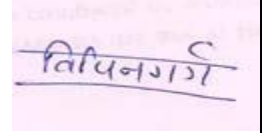 विपिन गर्ग